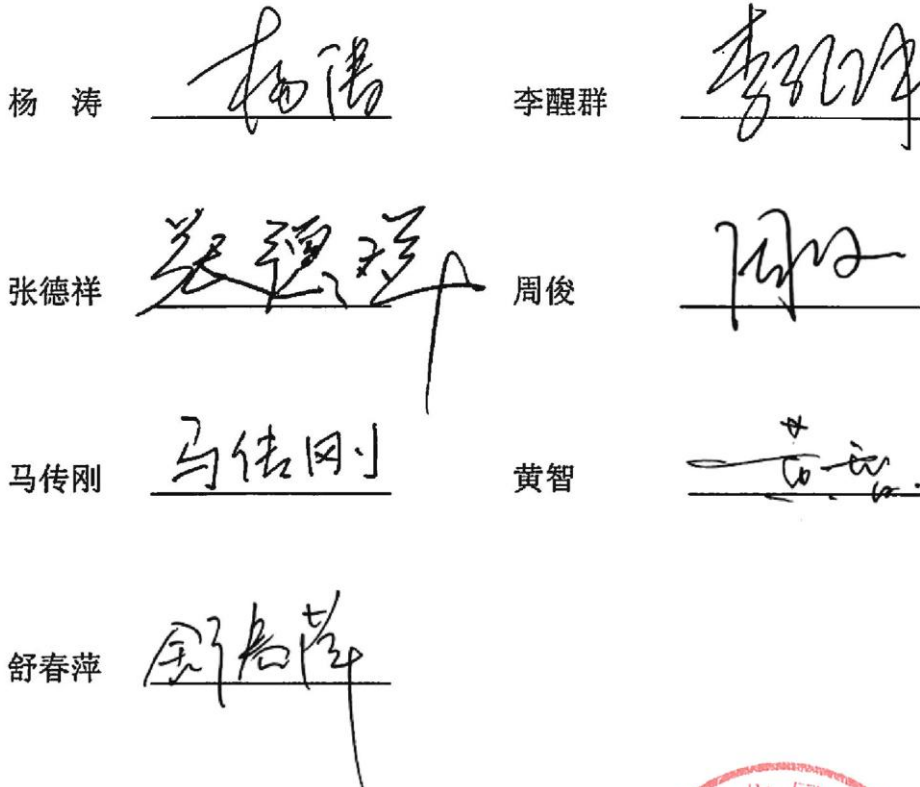 杨 涛 杨涛 李醒群 李醒群
张德祥 张德祥 周俊 周俊
马传刚 马传刚 黄智 黄智
舒春萍 舒春萍